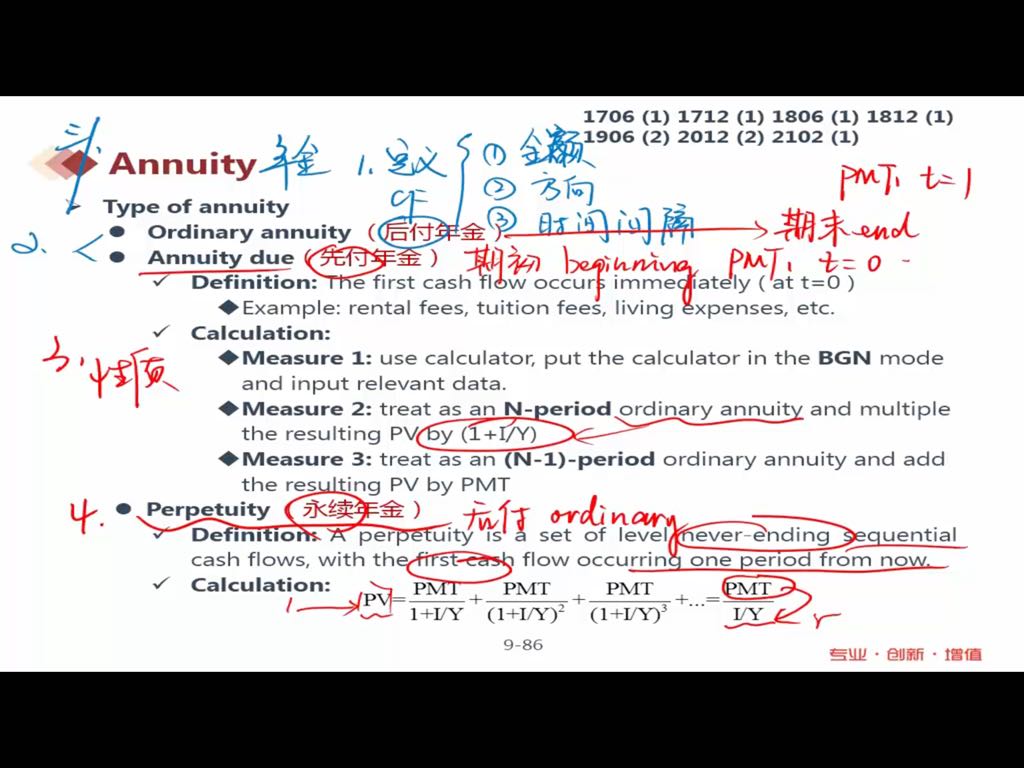 1706 (1) 1712 (1) 1806 (1) 1812 (1)
1906 (2) 2012 (2) 2102 (1)
三.
Annuity 年金 1. 定义 ① 金额
CF ② 方向
③ 时间间隔
PMT₁ t=1
Type of annuity
2.
● Ordinary annuity（后付年金） 期末 end
● Annuity due（先付年金） 期初 beginning PMT₁ t=0
✓ Definition: The first cash flow occurs immediately（at t=0）
◆Example: rental fees, tuition fees, living expenses, etc.
✓ Calculation:
3. 性质
◆Measure 1: use calculator, put the calculator in the BGN mode
and input relevant data.
◆Measure 2: treat as an N-period ordinary annuity and multiple
the resulting PV by (1+I/Y)
◆Measure 3: treat as an (N-1)-period ordinary annuity and add
the resulting PV by PMT
4. ● Perpetuity（永续年金） 后付 ordinary
✓ Definition: A perpetuity is a set of level never-ending sequential
cash flows, with the first cash flow occurring one period from now.
✓ Calculation: PV=PMT/(1+I/Y)+PMT/(1+I/Y)²+PMT/(1+I/Y)³+...=PMT/(I/Y) r
9-86
专业·创新·增值